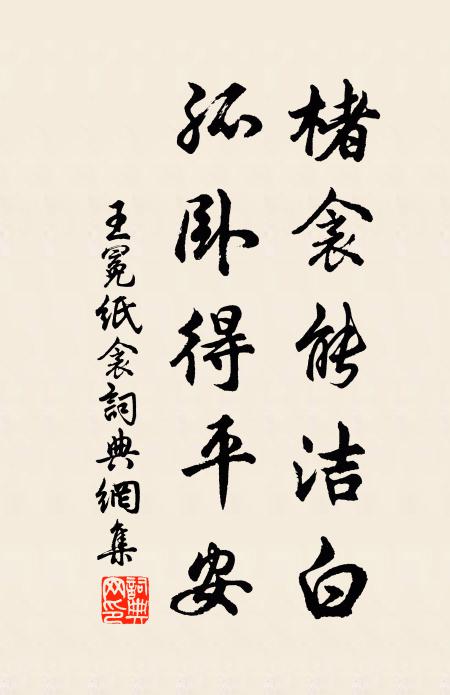 楮衾能洁白
孤卧得平安
王冕纸衾詞典網集
詞典網印